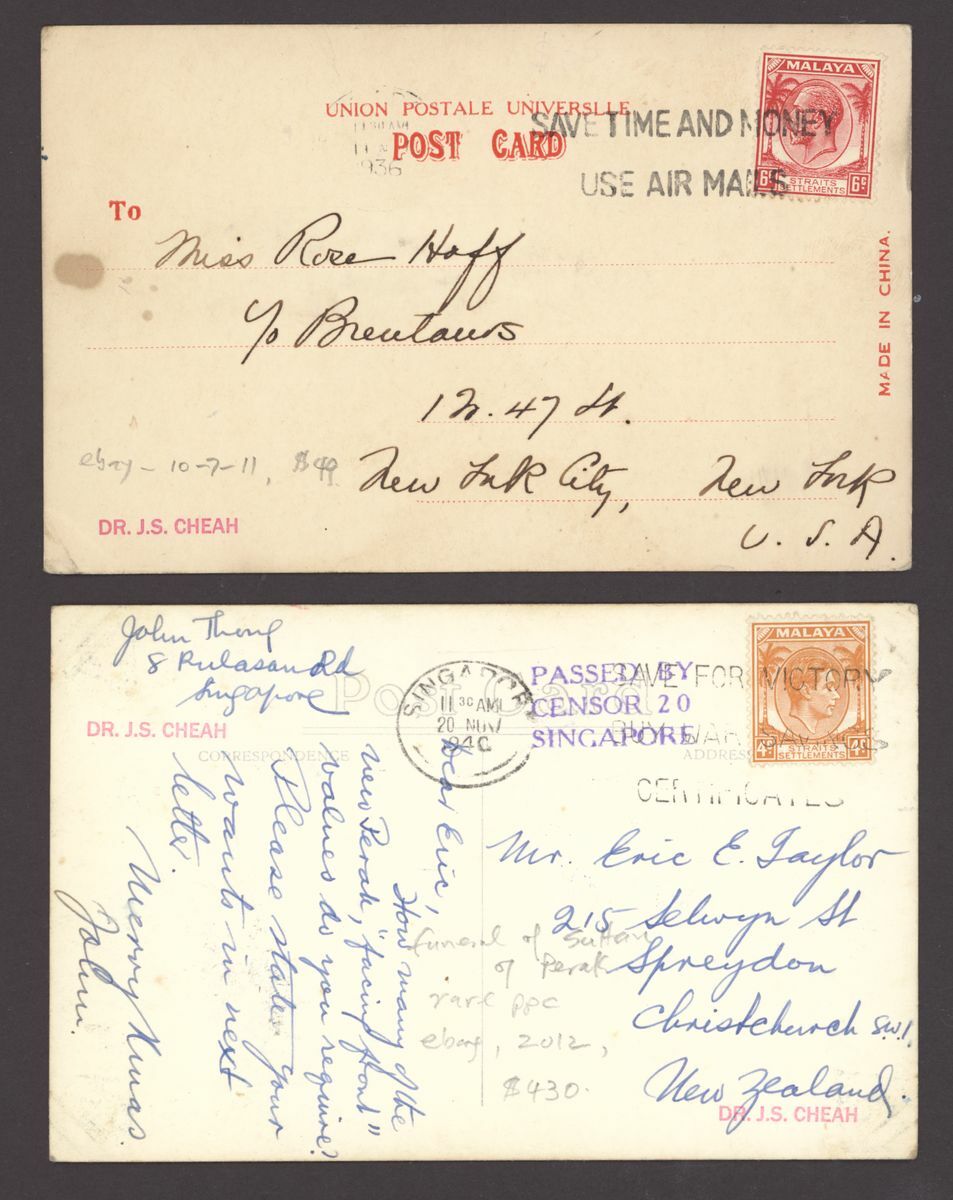 MALAYA
UNION POSTALE UNIVERSLLE
11 30 AM
1936
SAVE TIME AND MONEY
USE AIR MAILS
POST CARD
6c STRAITS SETTLEMENTS 6c
To
Miss Rose Hoff
c/o Brentanos
1 W. 47 St.
New York City, New York
U. S. A.
MADE IN CHINA.
ebay - 10-7-11, $49
DR. J.S. CHEAH
John Thong
8 Rulasan Rd
Singapore
DR. J.S. CHEAH
Post Card
CORRESPONDENCE
ADDRESS
SINGAPORE
11 30 AM
20 NOV
940
PASSED BY
CENSOR 20
SINGAPORE
SAVE FOR VICTORY
BUY WAR SAVINGS
CERTIFICATES
MALAYA
4c STRAITS SETTLEMENTS 4c
Dear Eric,
How many of the
new Perak, "facing front"
values do you require?
Please state your
wants in next
letter.
Merry Xmas.
John.
Mr. Eric E. Taylor
215 Selwyn St
Spreydon
Christchurch S.W.1.
New Zealand.
funeral of Sultan
of Perak
rare ppc
ebay, 2012,
$430.
DR. J.S. CHEAH